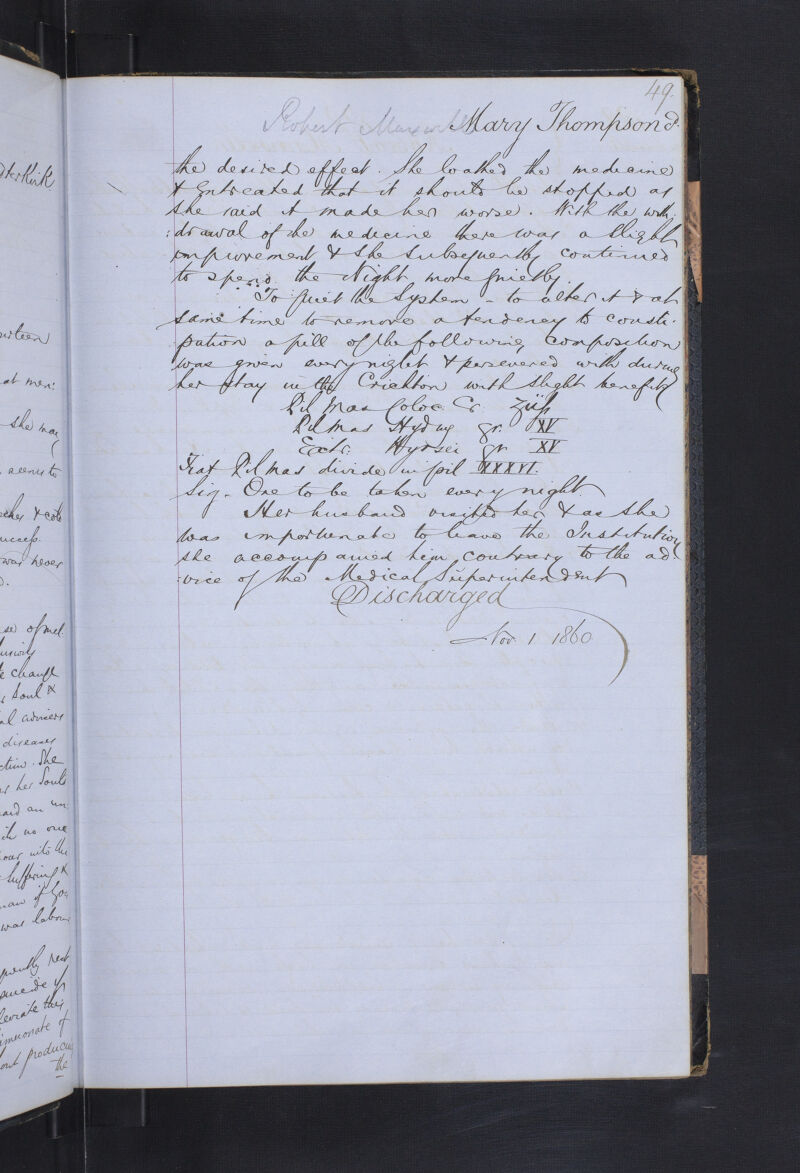 49.
Robert Maxwell Mary Thompson
the desired effect. She loathed the medicine
& Entreated that it should be stopped as
she said it made her worse. With the with:
:drawal of the medicine there was a slight
improvement & she subsequently continued
to spend the Night more quietly.
To quiet the System - to alter it & at
same time to remove a tendency to consti:
:pation a pill of the following composition
was given every night & persevered with during
her stay in the Crichton with slight benefit
Pil Mas Coloc. Co.
Pil Mas Hydrarg gr. XV
Extr. Hyosci gr XV
Fiat Pil Mas divide in pil XXXVI.
Sig. One to be taken every night
Her husband visited her & as she
was importunate to leave the Institution
she accompanied him contrary to the ad-
:vice of the Medical Superintendent
Discharged
Nov. 1 1860
urteen
at men:
she may
seems to
& cold
was never
se of mel
change
Soul &
al advisers
diseases
ction. She
her Souls
an un
no one
into the
suffering &
was labour
suicide
leviate this
out producing
the